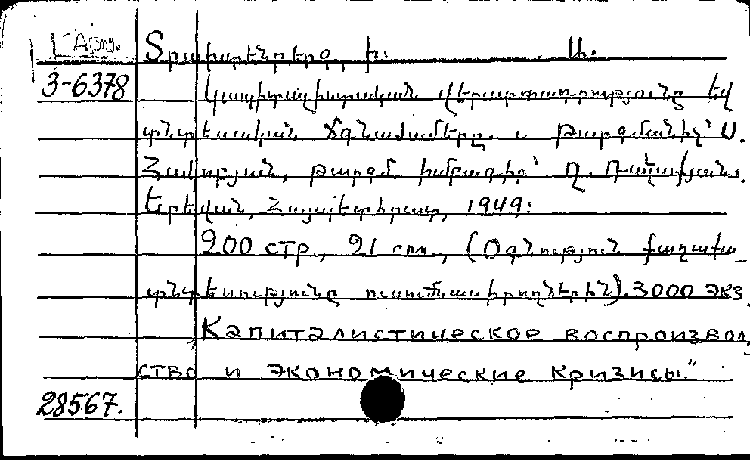 Տրախտենբերգ, Ի. Ա.
3-6378
Կապիտալիստական վերարտադրությունը եվ
տնտեսական ճգնաժամերը. Թարգմանիչ՝ Ս.
թարգմ. խմբագիր՝ Ղ.
Երեվան, Հայպետհրատ, 1949:
200 стр., 21 см., (Օգնություն քաղաքա
տնտեսությունը ուսումնասիրողներին). 3000 экз.
Капиталистическое воспроизвод
ство и экономические кризисы"
28567.